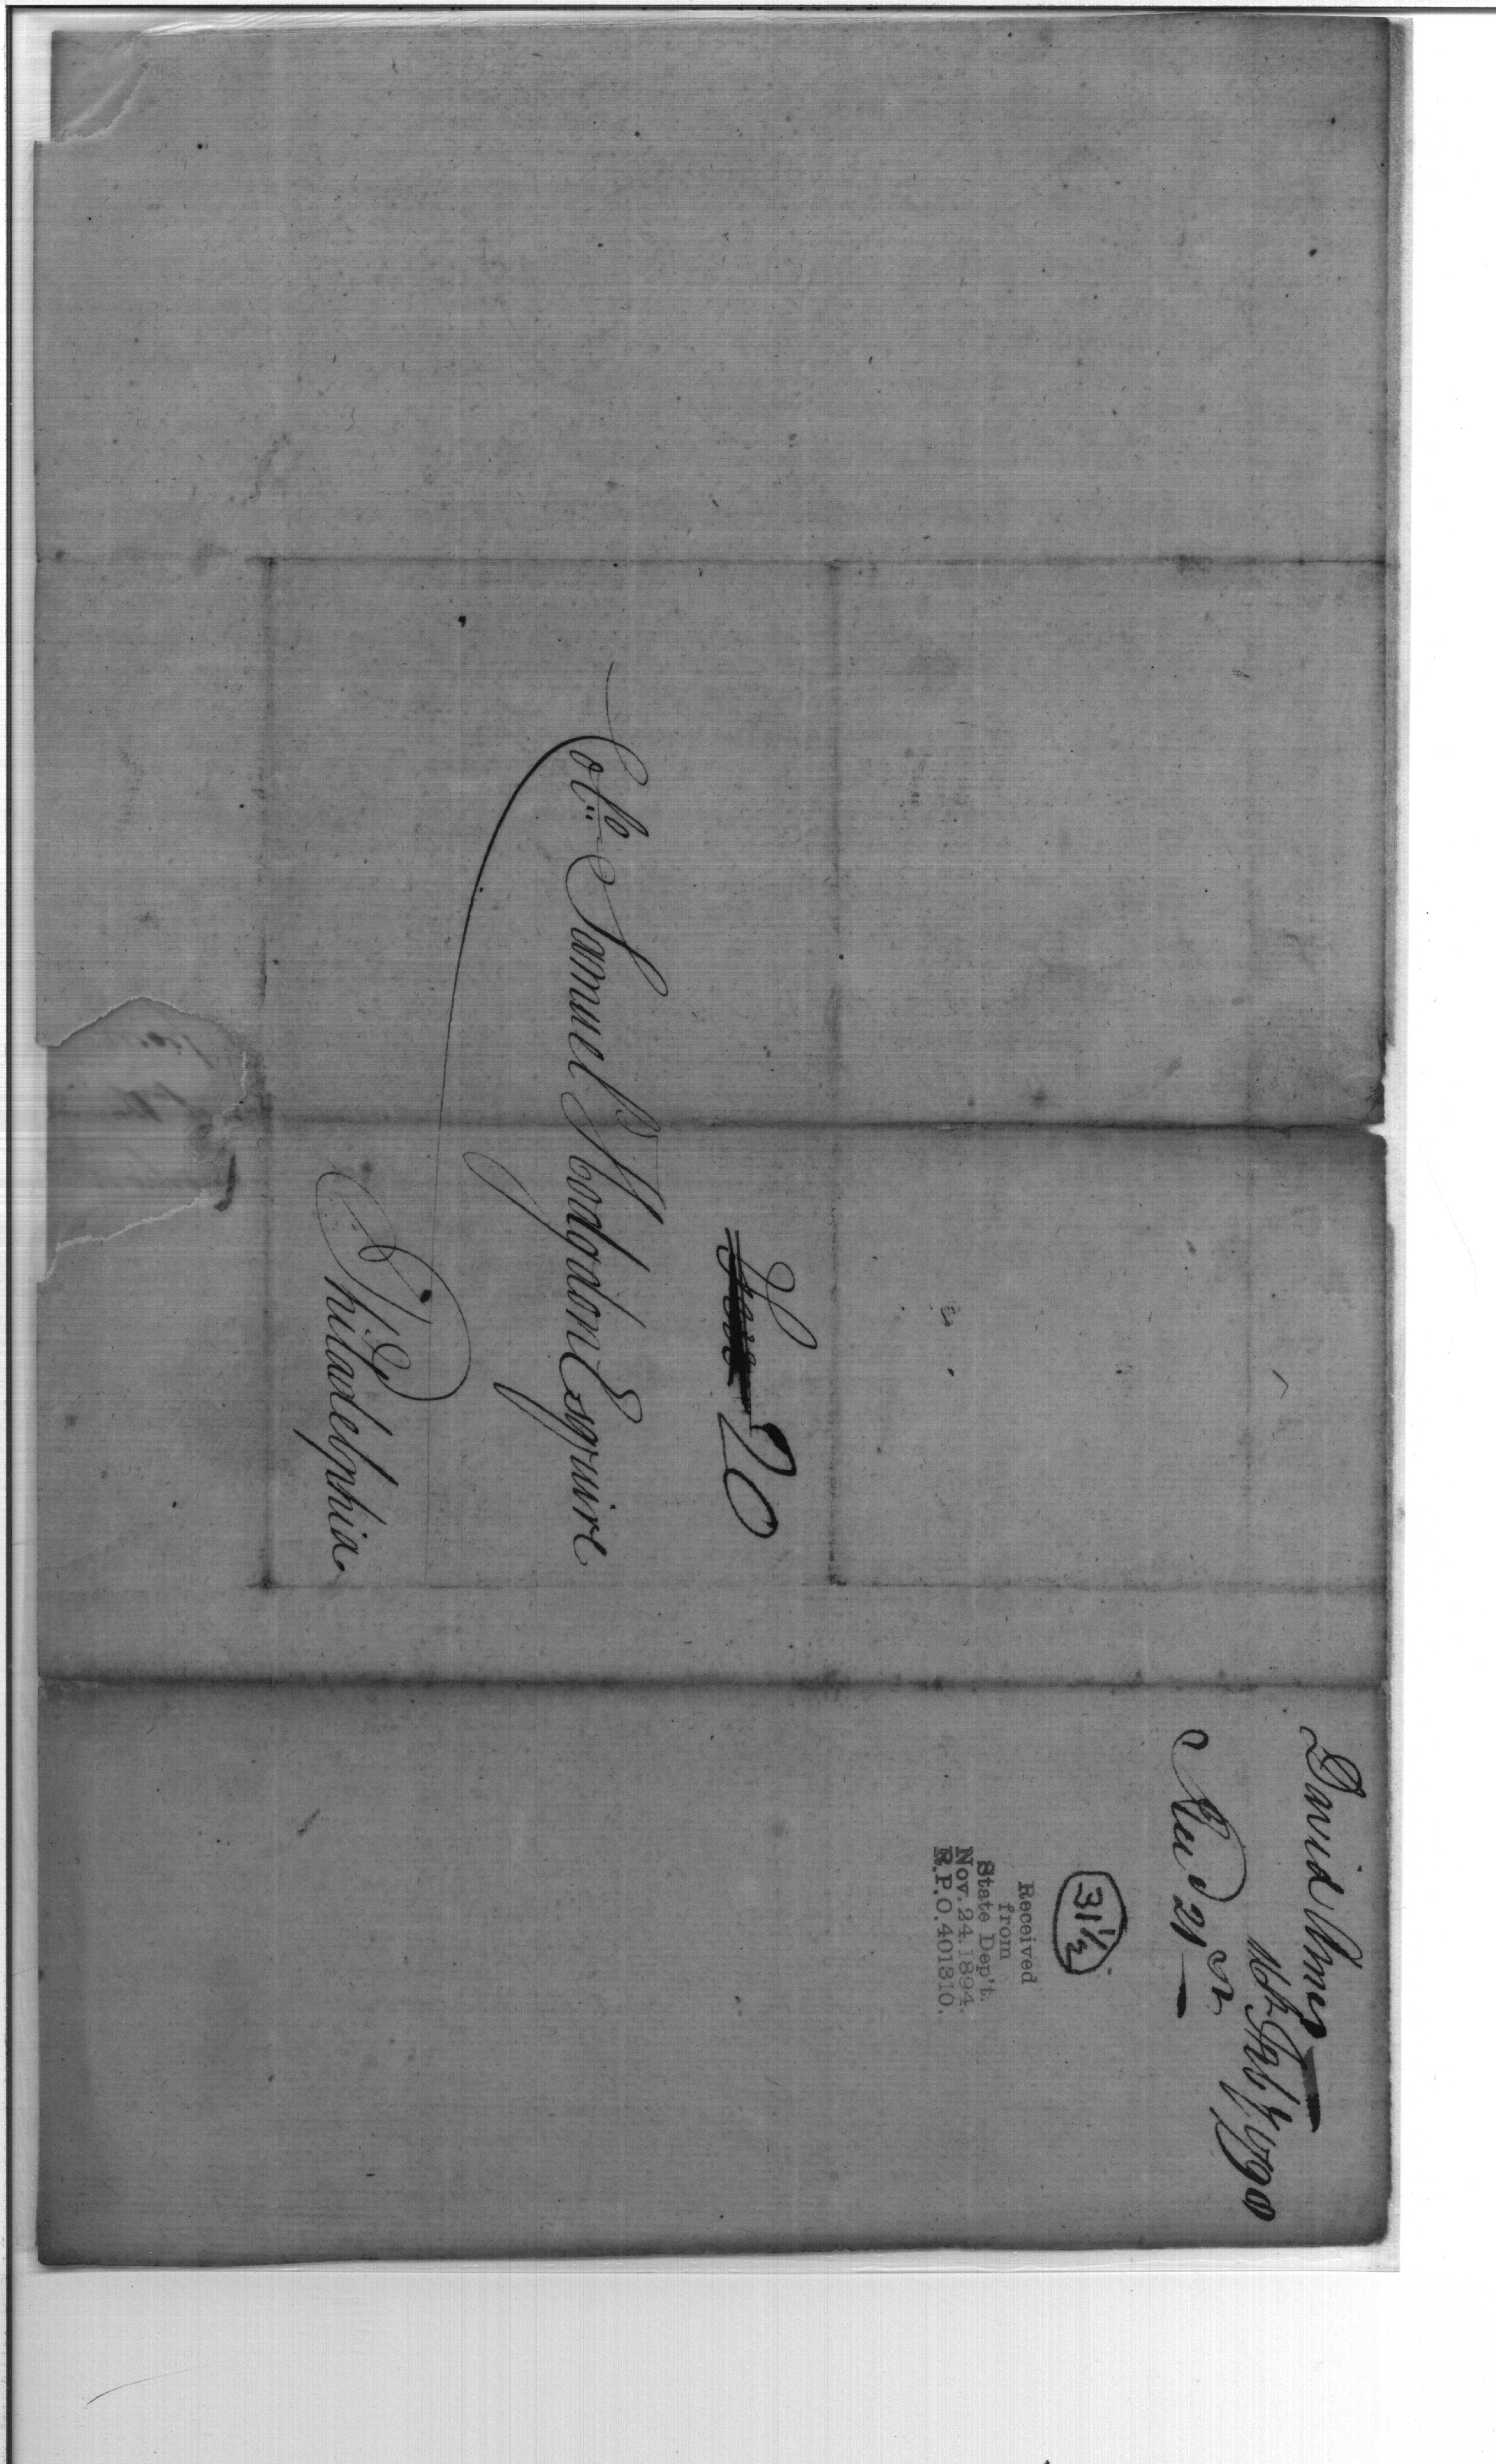 David Ames
16th Feby. 1798
Recd. 21st
31½
Received
from
State Dep't.
Nov. 24. 1894.
R.P.O. 401310.
20
Colo. Samuel Hodgdon Esquire
Philadelphia